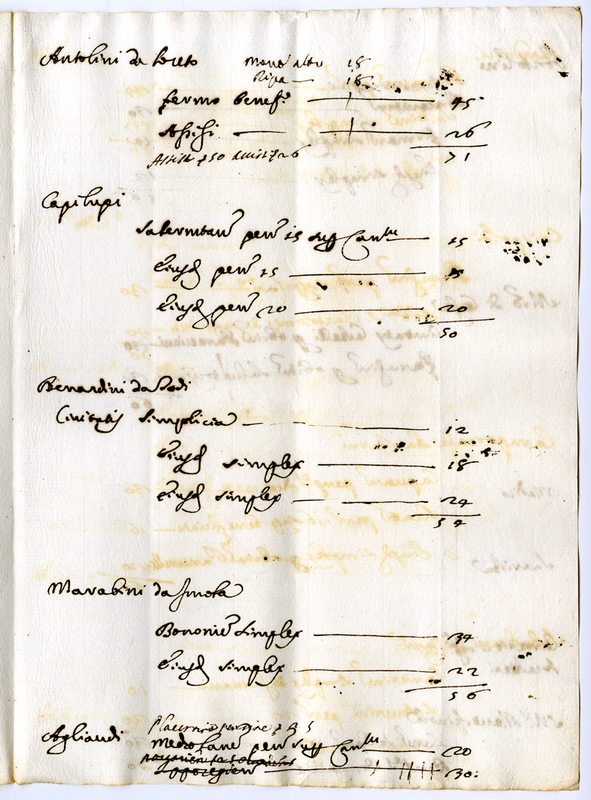 Antolini da loreto Mont' alto 18
Ripa — 18
fermo benef. — 45
Assisi — 26
71
Capilupi
Salernitan' pen' 15 — 15
Eiusd pen' 15 — 15
Eiusd pen' 20 — 20
50
Bernardini da Lodi
Civitatis Simplicia — 12
Eiusd simplex — 18
Eiusd simplex — 24
54
Marabini da Imola
Bononien' Simplex — 34
Eiusd simplex — 22
56
Agliaudi
Mediolanen' pen' — 20
30: